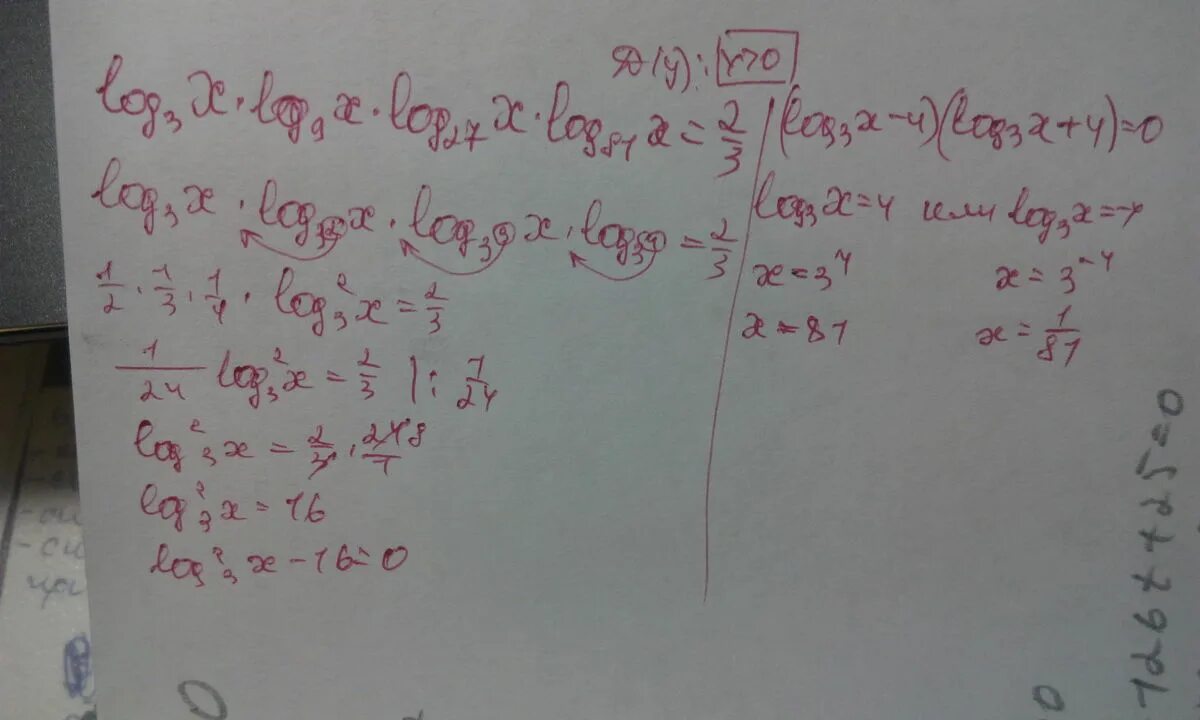 D(y): x>0
log₃x · log₉x · log₂₇x · log₈₁x = 2/3
log₃x · log₃²x · log₃³x · log₃⁴ = 2/3
1/2 · 1/3 · 1/4 · log₃²x = 2/3
1/24 log₃²x = 2/3 | : 1/24
log²₃x = 2/3 · 24 8/1
log²₃x = 16
log²₃x - 16 = 0
(log₃x - 4)(log₃x + 4) = 0
log₃x = 4 или log₃x = -4
x = 3⁴ x = 3⁻⁴
x = 81 x = 1/81
126t + 25 = 0